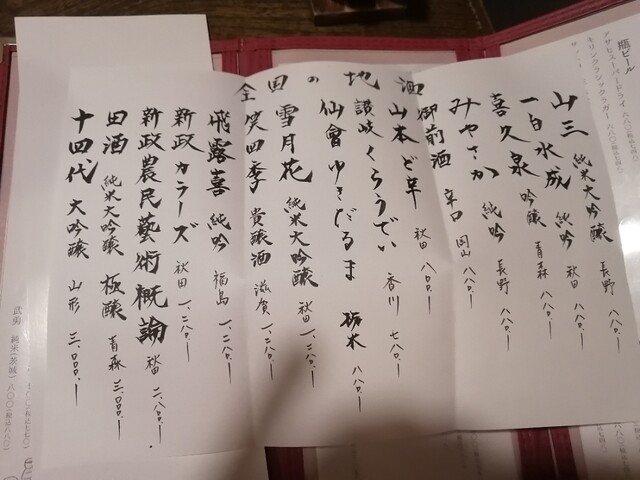 全国の地酒
山三 純米大吟醸 長野 八八〇.ー
一白水成 純吟 秋田 八八〇.ー
喜久泉 吟醸 青森 八八〇.ー
みやさか 純吟 長野 八八〇.ー
御前酒 辛口 岡山 八八〇.ー
山本 ど辛 秋田 八八〇.ー
讃岐くらうでぃ 香川 七八〇.ー
仙禽 ゆきだるま 栃木 八八〇.ー
雪月花 純米大吟醸 秋田 一、二八〇.ー
笑四季 貴醸酒 滋賀 一、二八〇.ー
飛露喜 純吟 福島 一、二八〇.ー
新政カラーズ 秋田 一、二八〇.ー
新政農民藝術概論 秋田 二、八〇〇.ー
田酒 純米大吟醸 極醸 青森 三、〇〇〇.ー
十四代 大吟醸 山形 三、〇〇〇.ー
瓶ビール
アサヒスーパードライ
キリンクラシックラガー
武勇 純米(茨城) 八〇〇(税込八八〇)